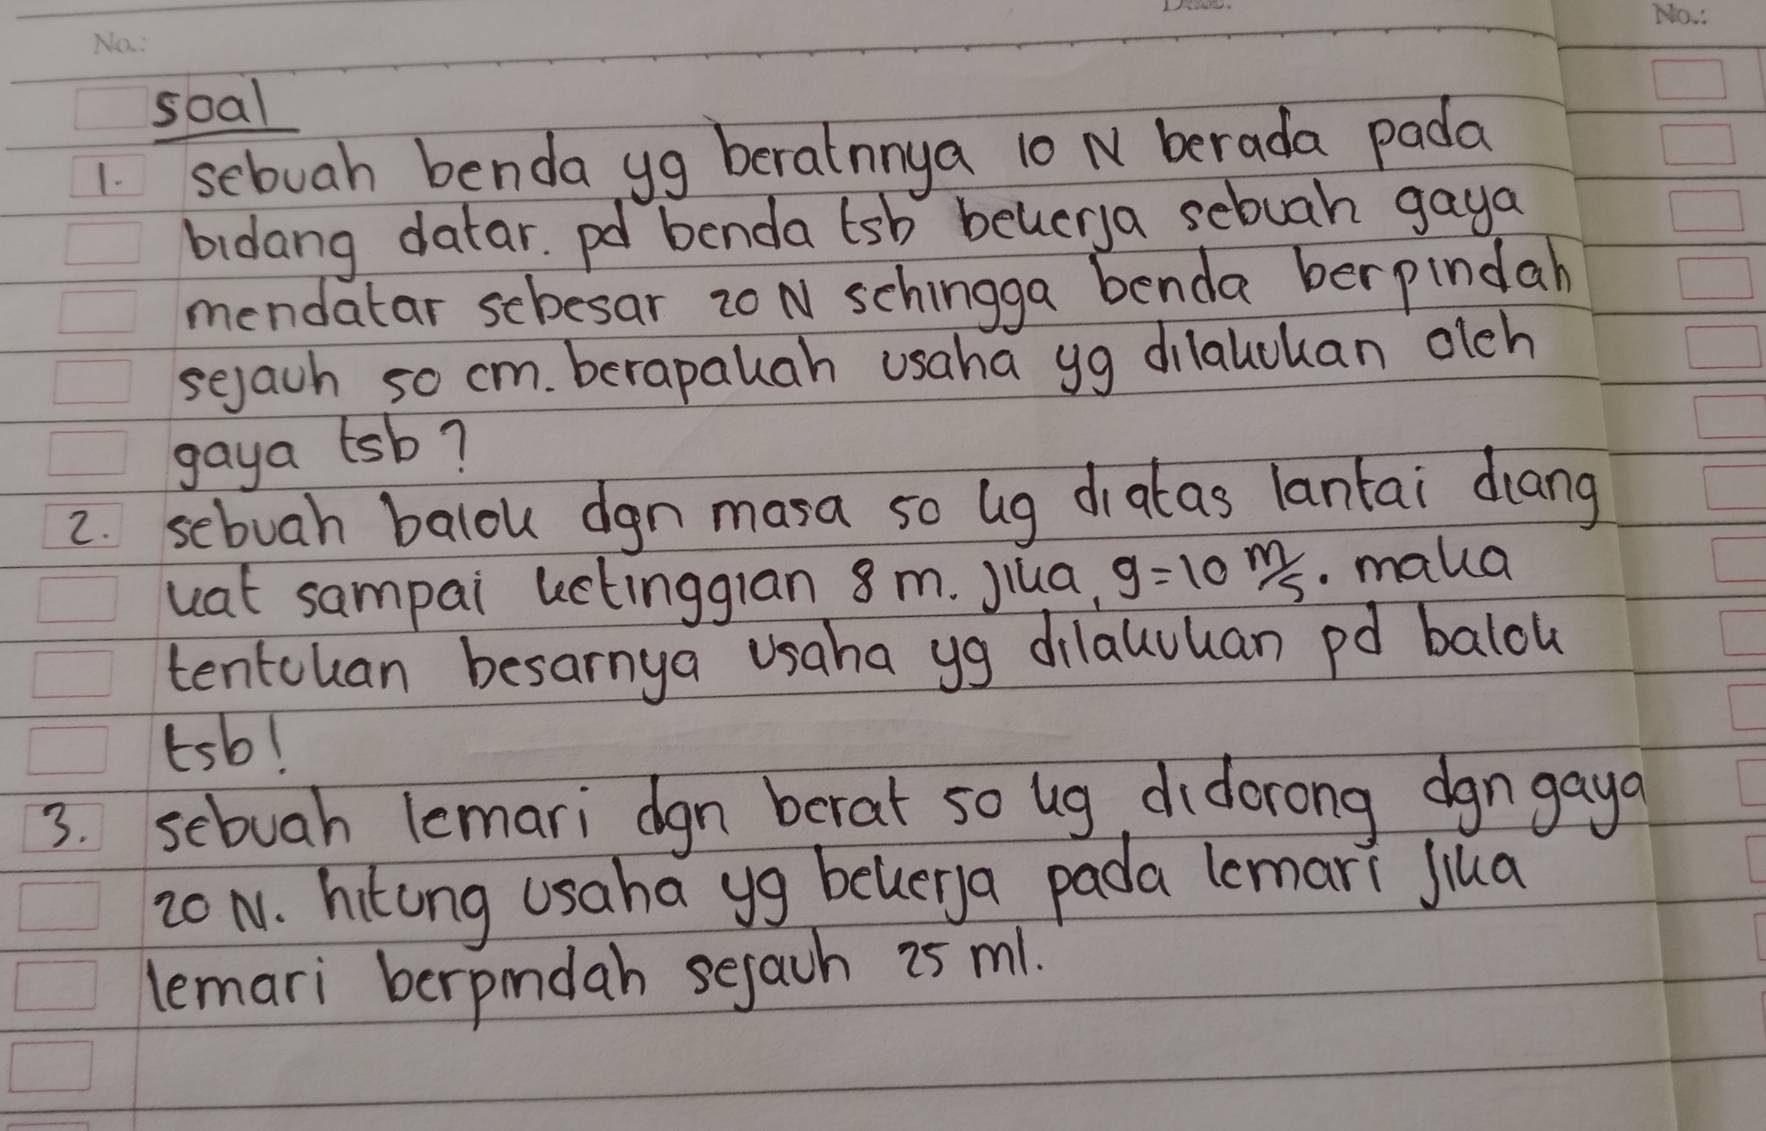 No.:
No.:
soal
1. sebuah benda yg beratnnya 10 N berada pada
bidang datar. pd benda tsb bekerja sebuah gaya
mendatar sebesar 20 N sehingga benda berpindah
sejauh 50 cm. berapakah usaha yg dilakukan oleh
gaya tsb?
2. sebuah balok dgn masa 50 kg diatas lantai diang
kat sampai ketinggian 8 m. jika, g=10 m/s. maka
tentukan besarnya usaha yg dilakukan pd balok
tsb!
3. sebuah lemari dgn berat 50 kg didorong dgn gaya
20 N. hitung usaha yg bekerja pada lemari jika
lemari berpindah sejauh 25 ml.